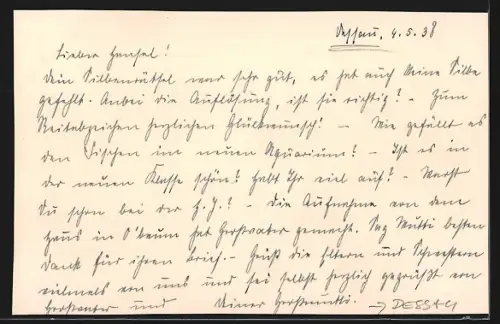 Dessau, 4.5.38
Lieber Hensel!
Dein Silbenrätsel war sehr gut, es hat auch keine Silbe
gefehlt. Anbei die Auflösung, ist sie richtig? - Zum
Reitabzeichen herzlichen Glückwunsch! - Wie gefällt es
den Fischen im neuen Aquarium? - Ist es in
der neuen Klasse schön? Habt Ihr viel auf? - Warst
Du schon bei der H.J.? - Die Aufnahme von dem
Haus in O'baum hat Großvater gemacht. Sag Mutti besten
Dank für ihren Brief. - Grüß die Eltern und Schwestern
vielmals von uns und sei selbst herzlich gegrüßt von
Großvater und Deiner Großmutti.
→ DESSAU